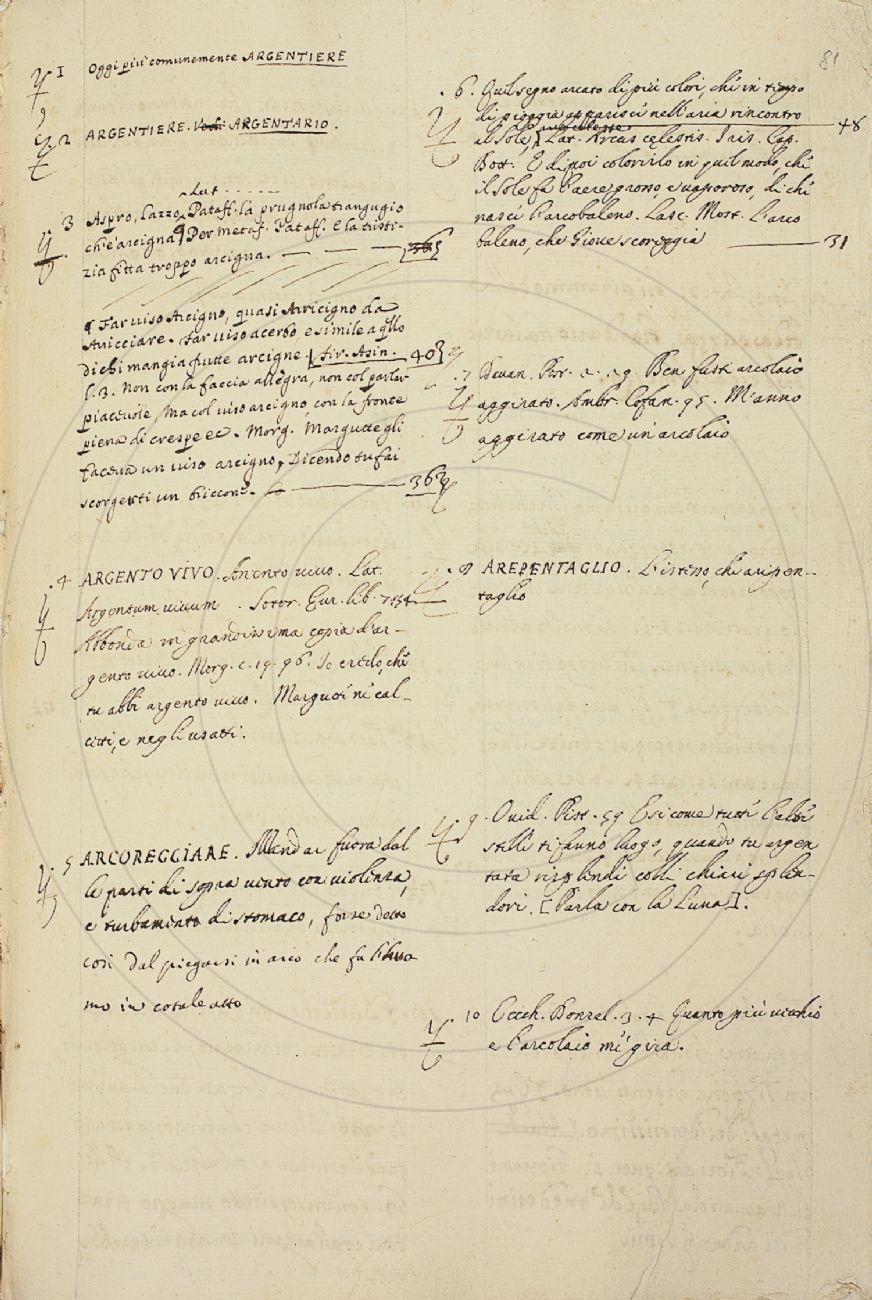 81
1 Oggi più comunemente ARGENTIERE
2 ARGENTIERE. Vedi ARGENTARIO.
3 Aspro, Lazzo, Lat. . . . . . Pataff. la prugnola trangugio
ch'è arcigna ¶ Per metaf. Pataff. E la tristi-
zia fitta troppo arcigna.
¶ Far viso Arcigno, quasi Arricigno da
Arricciare. Far viso acerbo, e simile a qllo
di chi mangia frutte arcigne. Fir. Asin. 403
l. 3. Non con la faccia allegra, non col parlar
piacevole, ma col viso arcigno, con la fronte
piena di crespe ec. Morg. Margutte gli
faceva un viso arcigno, Dicendo tu fai
scorgerti un briccone. 363
4 ARGENTO VIVO. Ariento vivo. Lat.
Argentum vivum. Sotor. Eur. lib. 7
Abbonda in grandissima copia d'ar-
gento vivo. Morg. c. 19. 96. Io credo, che
tu abbi argento vivo. Margutte ne cal-
cetti, e negli usatti.
5 ARCOREGGIARE. Mandar fuora dal
le parti di sopra vento con violenza,
e turbamento di stomaco, forse detto
così dal piegarsi in arco che fa l'huo
mo in cotale atto
6. Quel segno arcato di più colori, che in tempo
di pioggia apparisce nell'aria rincontro 48
al Sole, arco celeste Lat. Arcus celestis. Iris. Cap.
Bott. E dipoi colorirlo in quel modo, che
il Sole fa l'aere grosso, e vaporoso, di che
nasce l'arcobaleno. Lasc. Most. L'arco
baleno, che Giove scoreggia 31
7. Bevan. Ror. 2. 29. Ben fusti arcolaio
aggirato. Ambr. Cofan. 95. M'anno
aggirato come un'arcolaio
8 AREPENTAGLIO. L'istesso, che aripen-
taglio
9. Ovid. Pist. 59 E sì come tutte l'altre
stelle ti fanno luogo, quando tu argen
tata risplendi colli chiari splen-
dori. [Parla con la Luna].
10 Cecch. Donzel. 3. 4 Quanto più vecchio
e l'arcolaio mi gira.